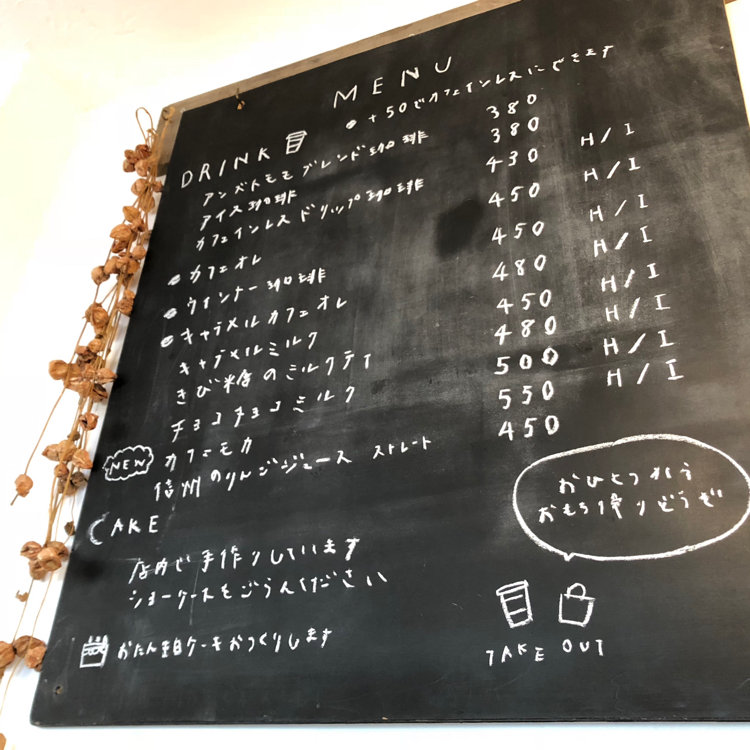 MENU
● +50でカフェインレスにできます
DRINK
アンズトモモ ブレンド珈琲 380
アイス珈琲 380
カフェインレス ドリップ珈琲 430 H/I
● カフェオレ 450 H/I
● ウインナー珈琲 450 H/I
● キャラメルカフェオレ 480 H/I
キャラメルミルク 450 H/I
きび糖のミルクティ 480 H/I
チョコチョコミルク 500 H/I
NEW カフェモカ 550 H/I
信州のりんごジュース ストレート 450
CAKE
店内で手作りしています
ショーケースをごらんください
おたん生日ケーキおつくりします
おひとつから
おもち帰りどうぞ
TAKE OUT